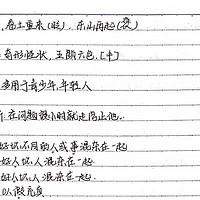 , 卷土重来(贬). 东山再起(褒)
: 奇形怪状, 五颜六色. [中]
多用于青少年, 年轻人
在问题很小时就走阻止他.
好坏不同的人或事混杂在一起
好人坏人混杂在一起
好人坏人混杂在一起.
以假充真